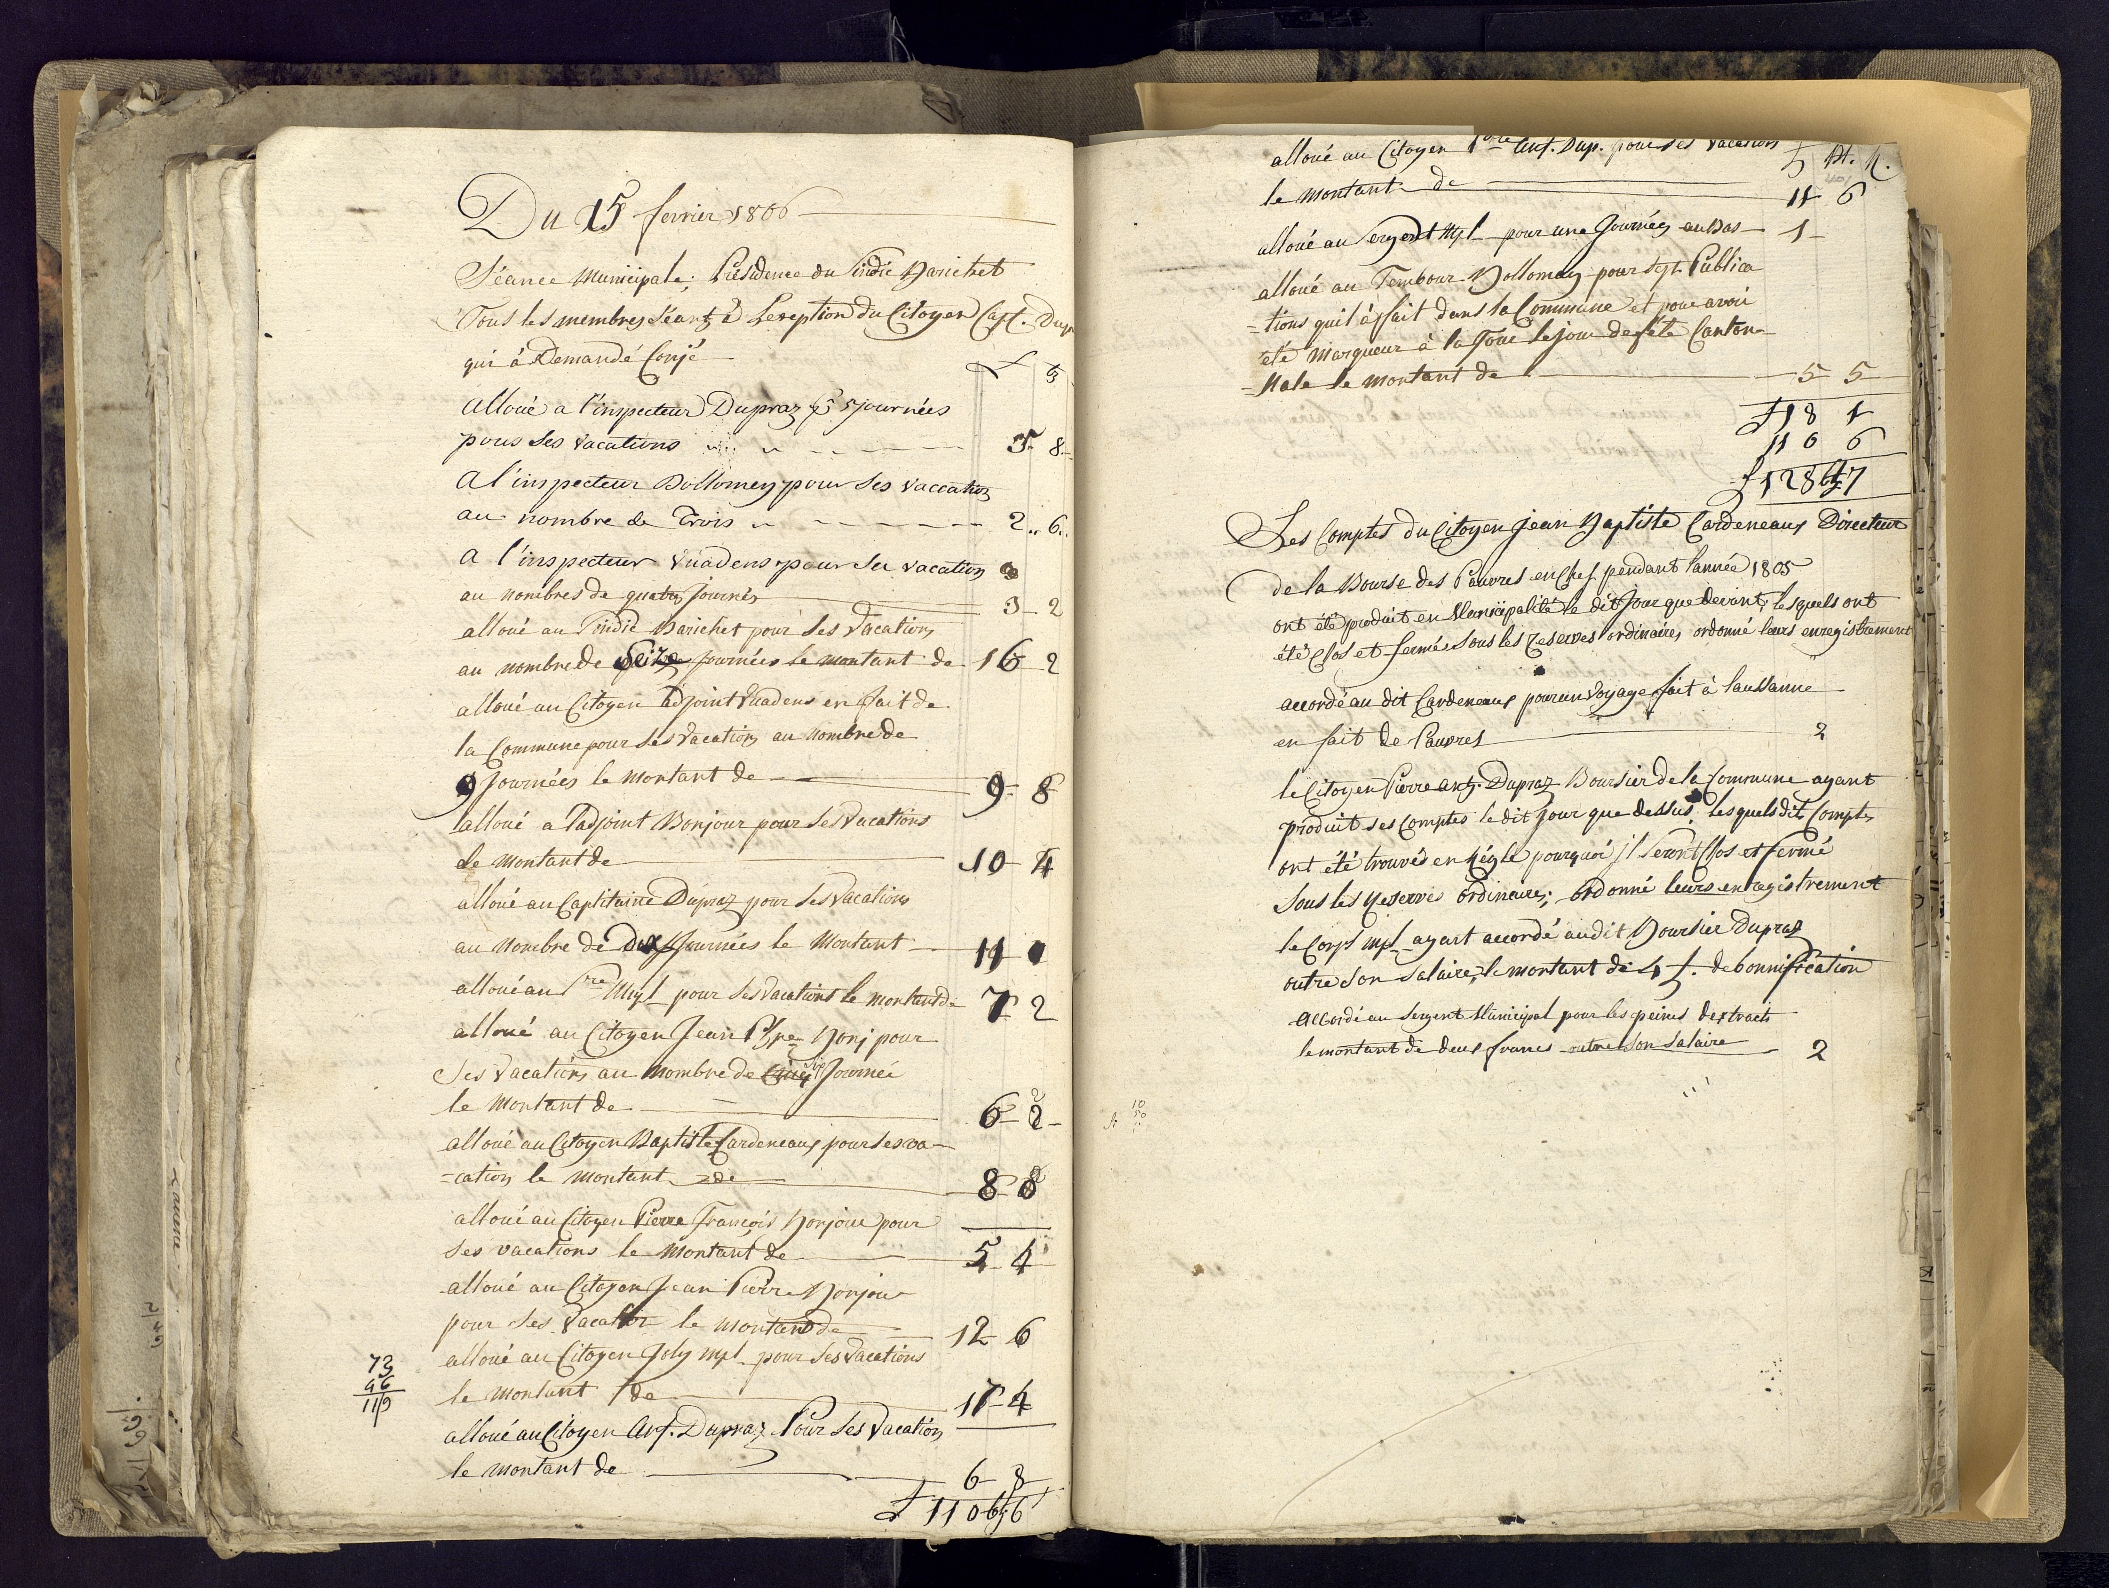 Du 15 fevrier 1806
Séance Municipale; Présidence du Sindic Barichet
Tous les membres Séants à Lexeption du Citoyen Capt. Dup
qui à Demandé Conjé
Alloué a l'inspecteur Dupraz pr 5 journées
pour ses vacations 5 8
A l'inspecteur Bollomey pour ses vaccations
au nombre de Trois 2 6
A l'inspecteur Vuadens pour ses vacations
au nombres de quatre journés 3 2
alloué au Sindic Barichet pour ses Vacations
au nombre de Seize journées le montant de 16 2
alloué au Citoyen adjoint Vuadens en fait de
la Commune pour ses vacations au nombre de
9 Journées le montant de 9 8
alloué a l'adjoint Bonjour pour ses vacations
le montant de 10 4
alloué au Capitaine Dupraz pour ses vacations
au nombre de Dix Journées le montant 11
alloué au Sre Mpl pour ses vacations le montant de 7 2
alloué au Citoyen Jean Pre Bonj pour
ses vacations au nombre de Journée
le montant de 6 2
alloué au Citoyen Baptiste Cardeneaux pour ses va-
-cations le montant de 8 8
alloué au Citoyen Pierre François Bonjour pour
ses vacations le montant de 5 4
alloué au Citoyen Jean Pierre Bonjour
pour ses vacation le montant de 12 6
alloué au Citoyen Joly mpl pour ses vacations
le montant de 17 4
alloué au Citoyen Ant. Dupraz Pour ses vacations
le montant de 6 8
110 6
73
46
119
alloué au Citoyen Pre Ant. Dup. pour ses vacations
le montant de 11 6
alloué au Sergent Mpl pour une Journées au Bas 1
alloué au Tembour Bollomey pour sept Publica
-tions quil à fait dans la Commune et pour avoir
été marqueur à la Tour le jour de fête Canton-
-nale le montant de 5 5
18 1
110 6
128 7
Les Comptes du Citoyen Jean Baptiste Cardeneaux Directeur
de la Bourse des Pauvres en Chef pendant l'année 1805
ont été produit en Municipalité le dit Jour que devant, lesquels ont
été Clos et fermés sous les reserves ordinaires, ordonné leurs enregistrement
accordé au dit Cardeneaux pour un voyage fait à Laussanne
en fait de Pauvres 2
le Citoyen Pierre Ant. Dupraz Boursier de la Commune ayant
produit ses Comptes le dit jour que dessus, lesquels dit Comptes
ont été trouvés en Régle pourquoi jl seront Clos et fermé
Sous les Reserves ordinaires; ordonné leurs enregistrement
le Corps mpl ayant accordé audit Boursier Dupraz
outre son salaire, le montant de 4 f. de bonnification
Accordé au Sergent Municipal pour les peines dextraits
le montant de deux francs outre son salaire 2